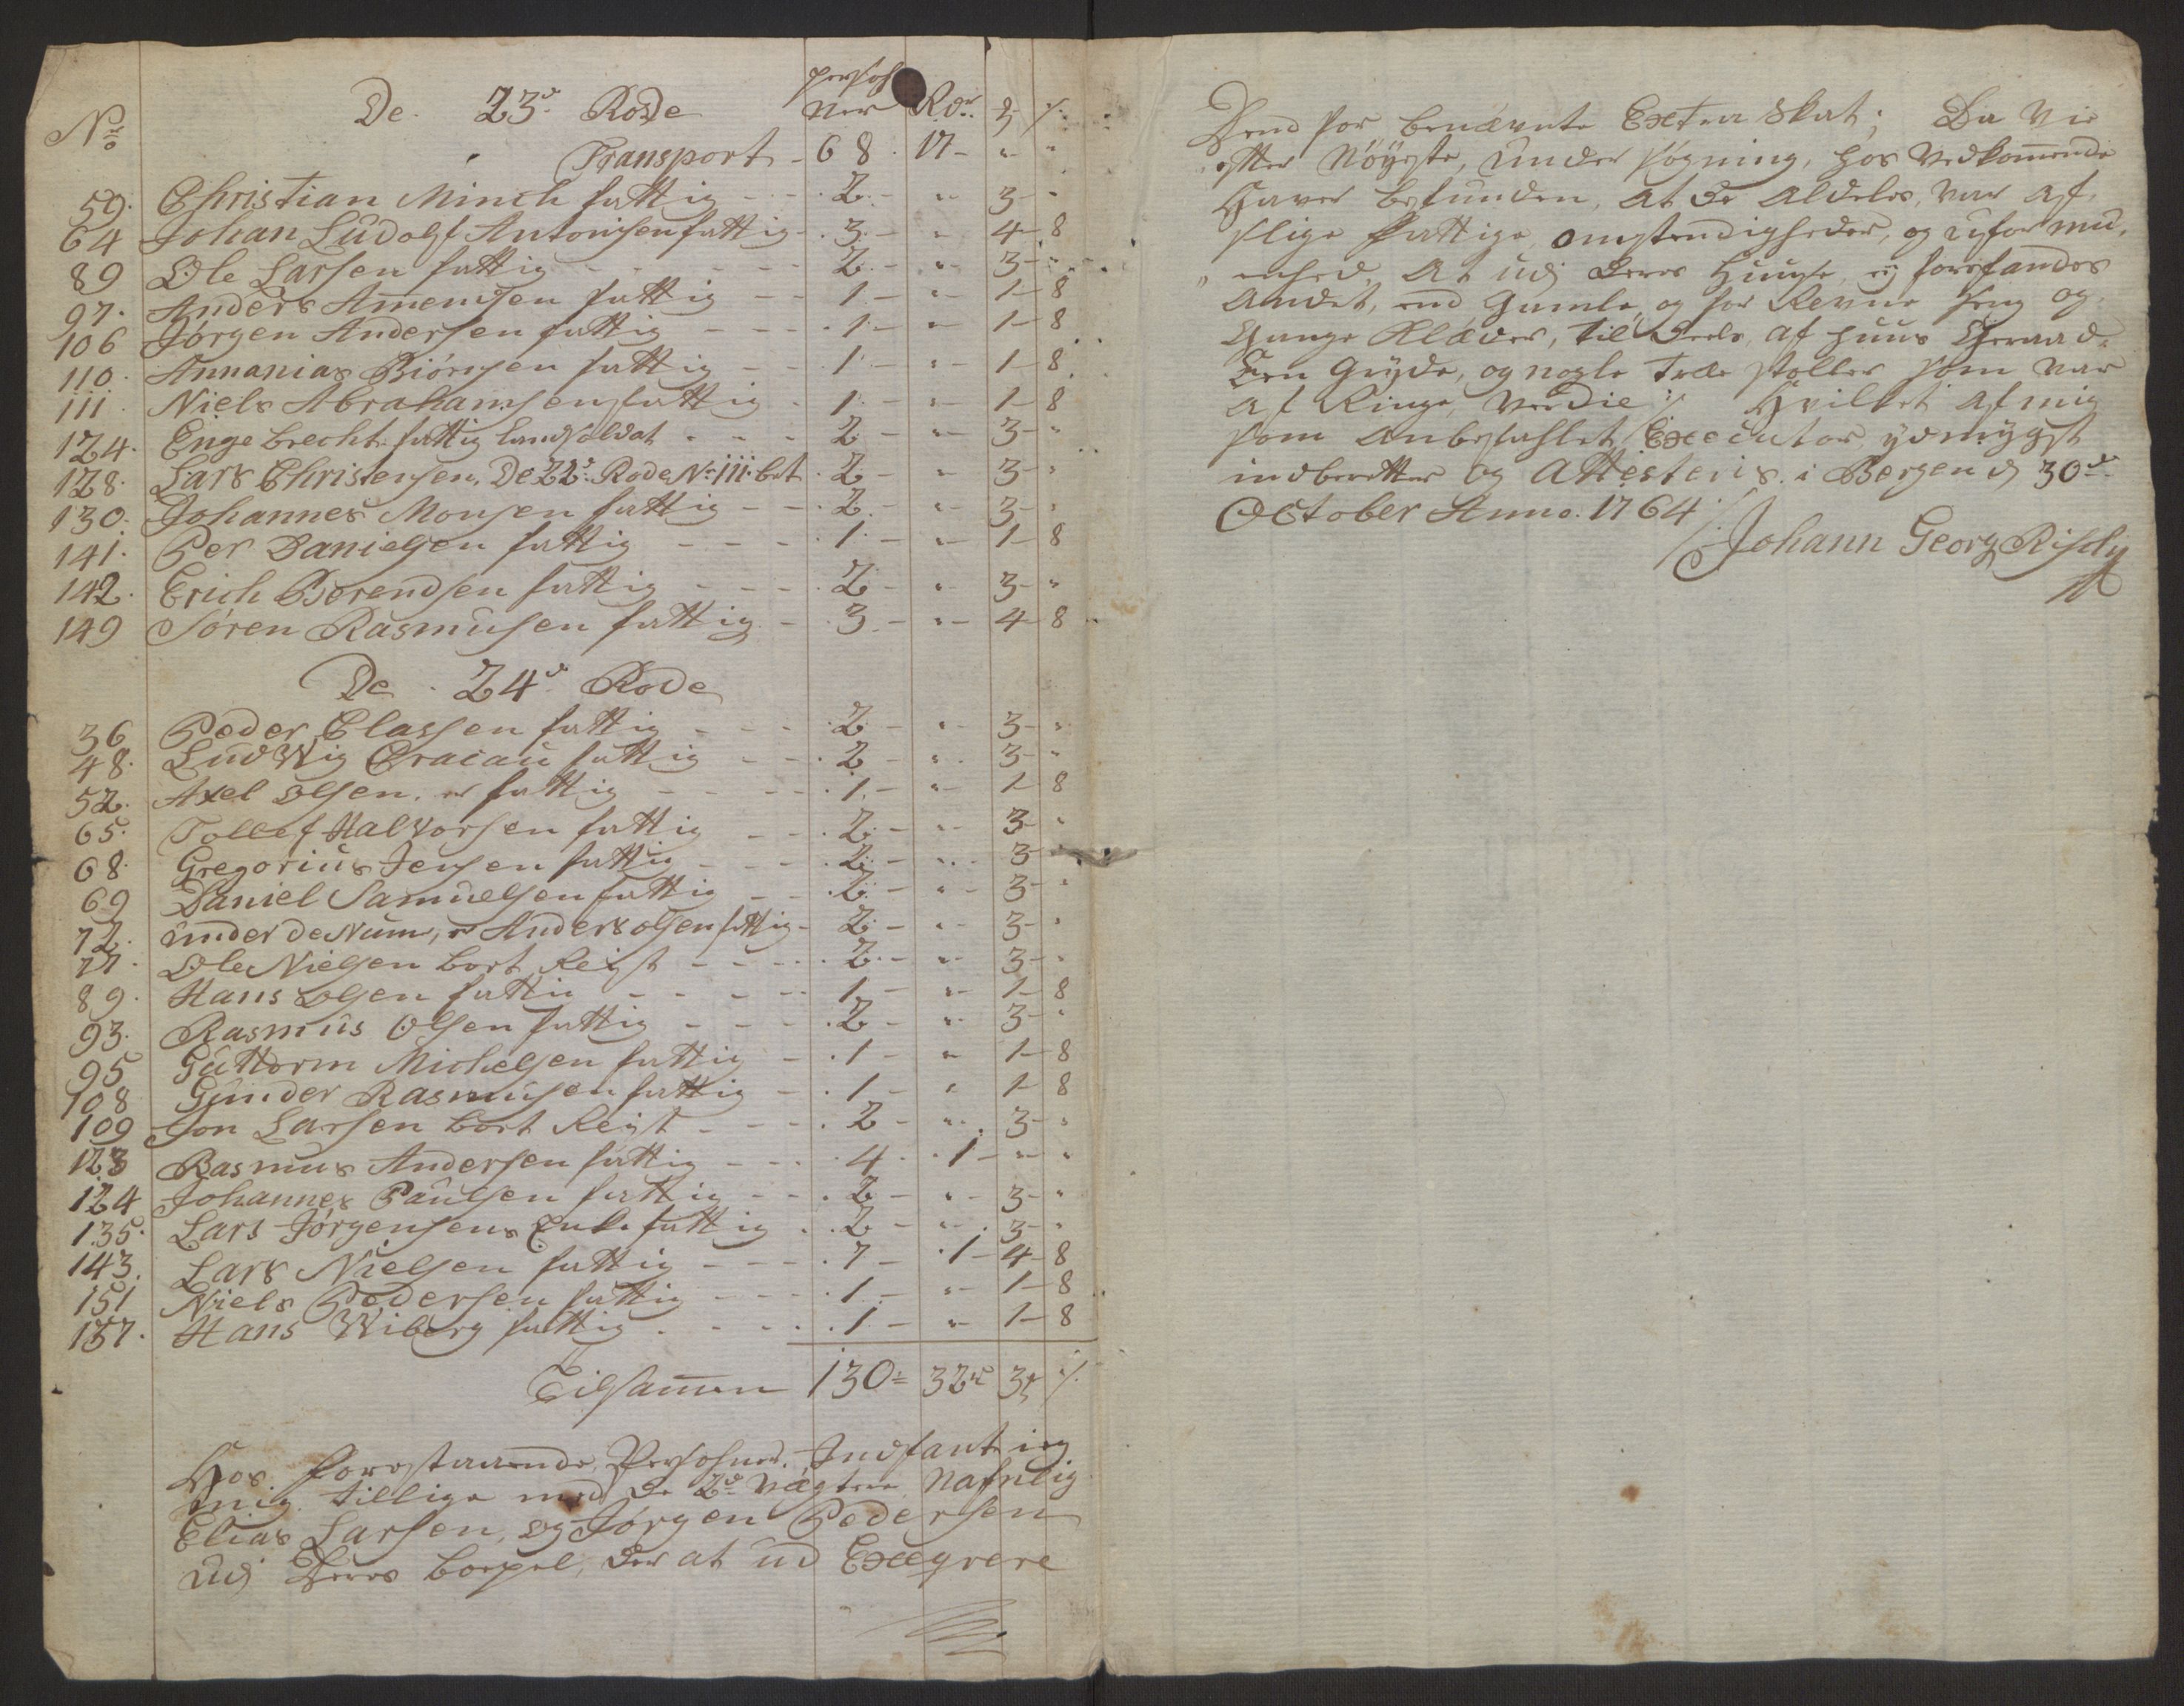 No De 23de Rode persohner Rdr ꝫ ß
Transport - 68 - 17 - " - "
59. Christian Minch fattig - - 2 - " - 3 - "
64 Johan Ludolf Antonisen fattig - 3 - " - 4 - 8
89 Ole Larsen fattig - - 2 - " - 3 - "
97. Anders Amensen fattig - - 1 - " - 1 - 8
106 Jörgen Andersen fattig - - 1 - " - 1 - 8
110. Annanias Biörnsen fattig - - 1 - " - 1 - 8
111 Niels Abrahamsen fattig - 1 - " - 1 - 8
124. Engebrecht fattig Landsoldat - - 2 - " - 3 - "
128. Lars Christensen, De 22de Rode No 111. bet. 2 - " - 3 - "
130. Johannes Monsen fattig - - 2 - " - 3 - "
141. Per Danielsen fattig - - 1 - " - 1 - 8
142. Erich Berendsen fattig - - 2 - " - 3 - "
149 Sören Rasmusen fattig - 3 - " - 4 - 8
De 24de Rode
36 Peder Classen fattig - - 2 - " - 3 - "
48. Ludwig Cracau fattig - - 2 - " - 3 - "
52. Axel Olsen, er fattig - - 1 - " - 1 - 8
65. Tollef Halvorsen fattig - - 2 - " - 3 - "
68. Gregorius Jensen fattig - - 2 - " - 3 - "
69 Daniel Samuelsen fattig - - 2 - " - 3 - "
72. under de Num, er Anders Olsen fattig - 2 - " - 3 - "
77. Ole Nielsen bort Reist - - 2 - " - 3 - "
89. Hans Olsen fattig - - 1 - " - 1 - 8
93. Rasmus Olsen fattig - - 2 - " - 3 - "
95 Guttorm Michelsen fattig - 1 - " - 1 - 8
108 Gunder Rasmusen fattig - 1 - " - 1 - 8
109 Jon Larsen bort Reist - - 2 - " - 3 - "
123 Rasmus Andersen fattig - - 4 - 1 - " - "
124 Johannes Paulsen fattig - - 2 - " - 3 - "
135. Lars Jörgensens Enke fattig - 2 - " - 3 - "
143. Lars Nielsen fattig - - 7 - 1 - 4 - 8
151 Niels Pedersen fattig - - 1 - " - 1 - 8
157. Hans Wiberg fattig - - 1 - " - 1 - 8
Tilsammen 130 = 32rd 3ꝫ ß
Hos forestaaende Persohner, Indfant ieg
mig tillige med de 2de Vægtere Nafnlig
Elias Larsen, og Jörgen Pedersen
udj Deres boepel, der at ud Exeqvere
Dend for benævnte Extra Skat; Da Vie
efter Nöyeste, under Sögning, hos Vedkommende
Haver befunden, At de Aldeles, var af
slige fattige omstendigheder, og uformu-
enhed, At udj Deres Huuse, ej forefandes
Andet, end Gamle, og for Revne Seng og
Gange Klæder, til Deels, af huus Geraad.
Een Gryde, og nogle træe stoller som var
af Ringe, Verdie; Hvilket af mig
som Anbefahlet Executor, ydmygst
indberetter og Attesteris, i Bergen d 30de
October Anno. 1764
Johann Georg